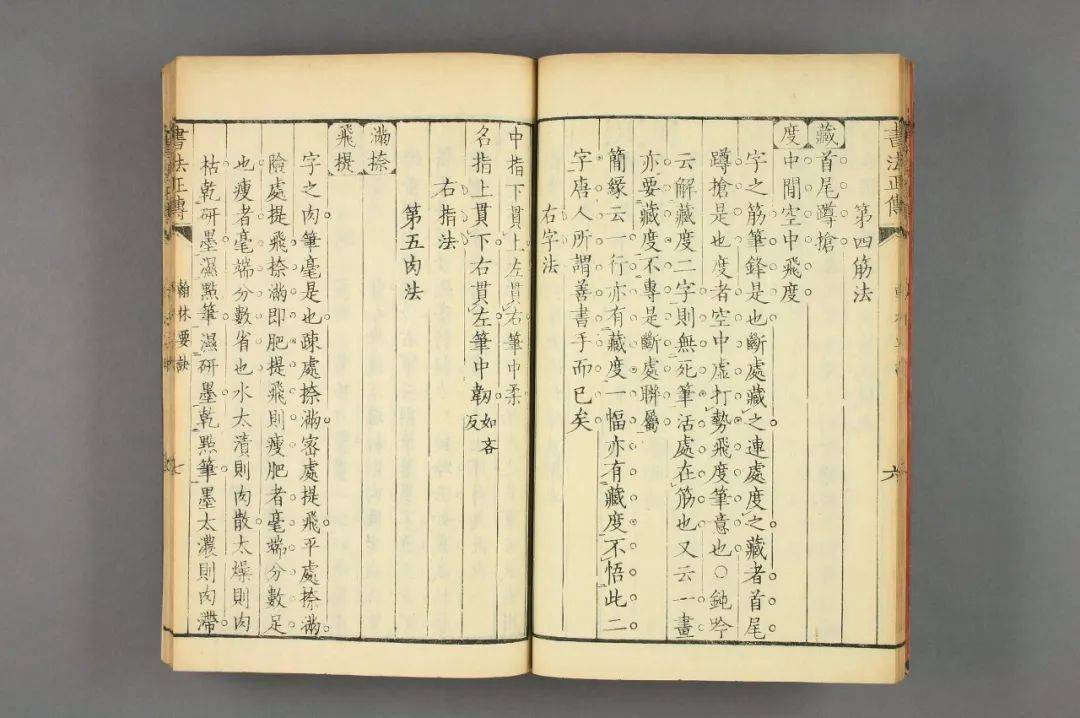 書法正傳
六
第四筋法
藏首尾蹲搶
度中間空中飛度
字之筋筆鋒是也斷處藏之連處度之藏者首尾
蹲搶是也度者空中虛打勢飛度筆意也○鈍吟
云解藏度二字則無死筆活處在筋也又云一畫
亦要藏度不專是斷處聯屬
簡緣云一行亦有藏度一幅亦有藏度不悟此二
字唐人所謂善書手而已矣
右字法
中指下貫上左貫右筆中柔
名指上貫下右貫左筆中韌如吝反
右指法
第五肉法
滿捺
飛提
字之肉筆毫是也疎處捺滿密處提飛平處捺滿
險處提飛捺滿即肥提飛則瘦肥者毫端分數足
也瘦者毫端分數省也水太漬則肉散太燥則肉
枯乾研墨濕點筆濕研墨乾點筆墨太濃則肉滯
書法正傳
翰林要訣
七